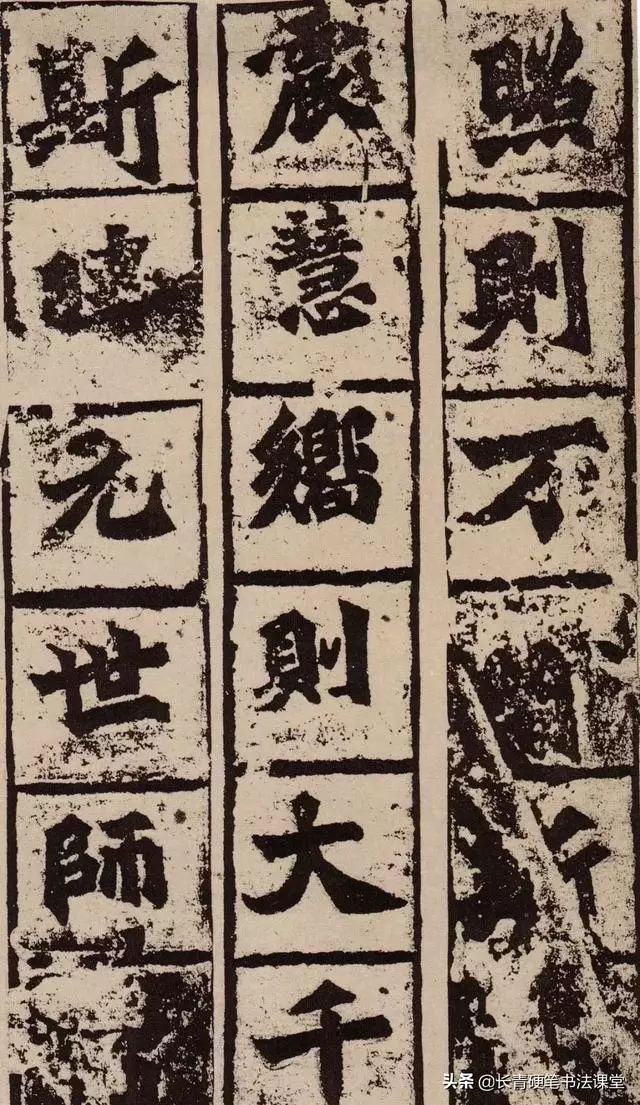 照則万斯
震慧嚮則大千
斯元世師
头条 @长青硬笔书法课堂